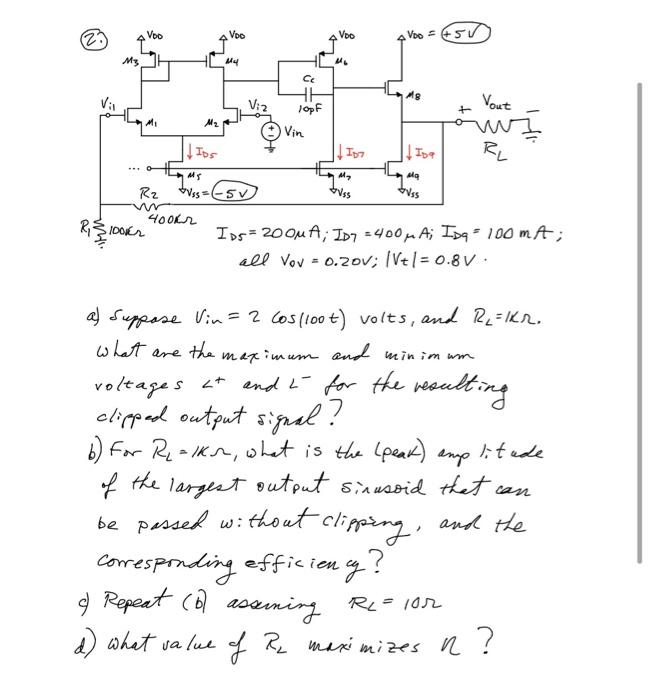 2.
VDD VDD VDD VDD = +5V
M3 M4 M6
Cc
M8
Vi1 Vi2 10pF + Vout -
M1 M2 Vin
RL
ID5 ID7 ID9
... M5 M7 M9
R2 VSS = -5V VSS VSS
400KΩ
R1 100KΩ
ID5 = 200μA; ID7 = 400μA; ID9 = 100mA;
all Vov = 0.20V; |Vt| = 0.8V.
a) Suppose Vin = 2 cos(100t) volts, and RL = 1KΩ.
What are the maximum and minimum
voltages L+ and L- for the resulting
clipped output signal?
b) For RL = 1KΩ, what is the (peak) amplitude
of the largest output sinusoid that can
be passed without clipping, and the
corresponding efficiency?
c) Repeat (b) assuming RL = 10Ω
d) What value of RL maximizes η?